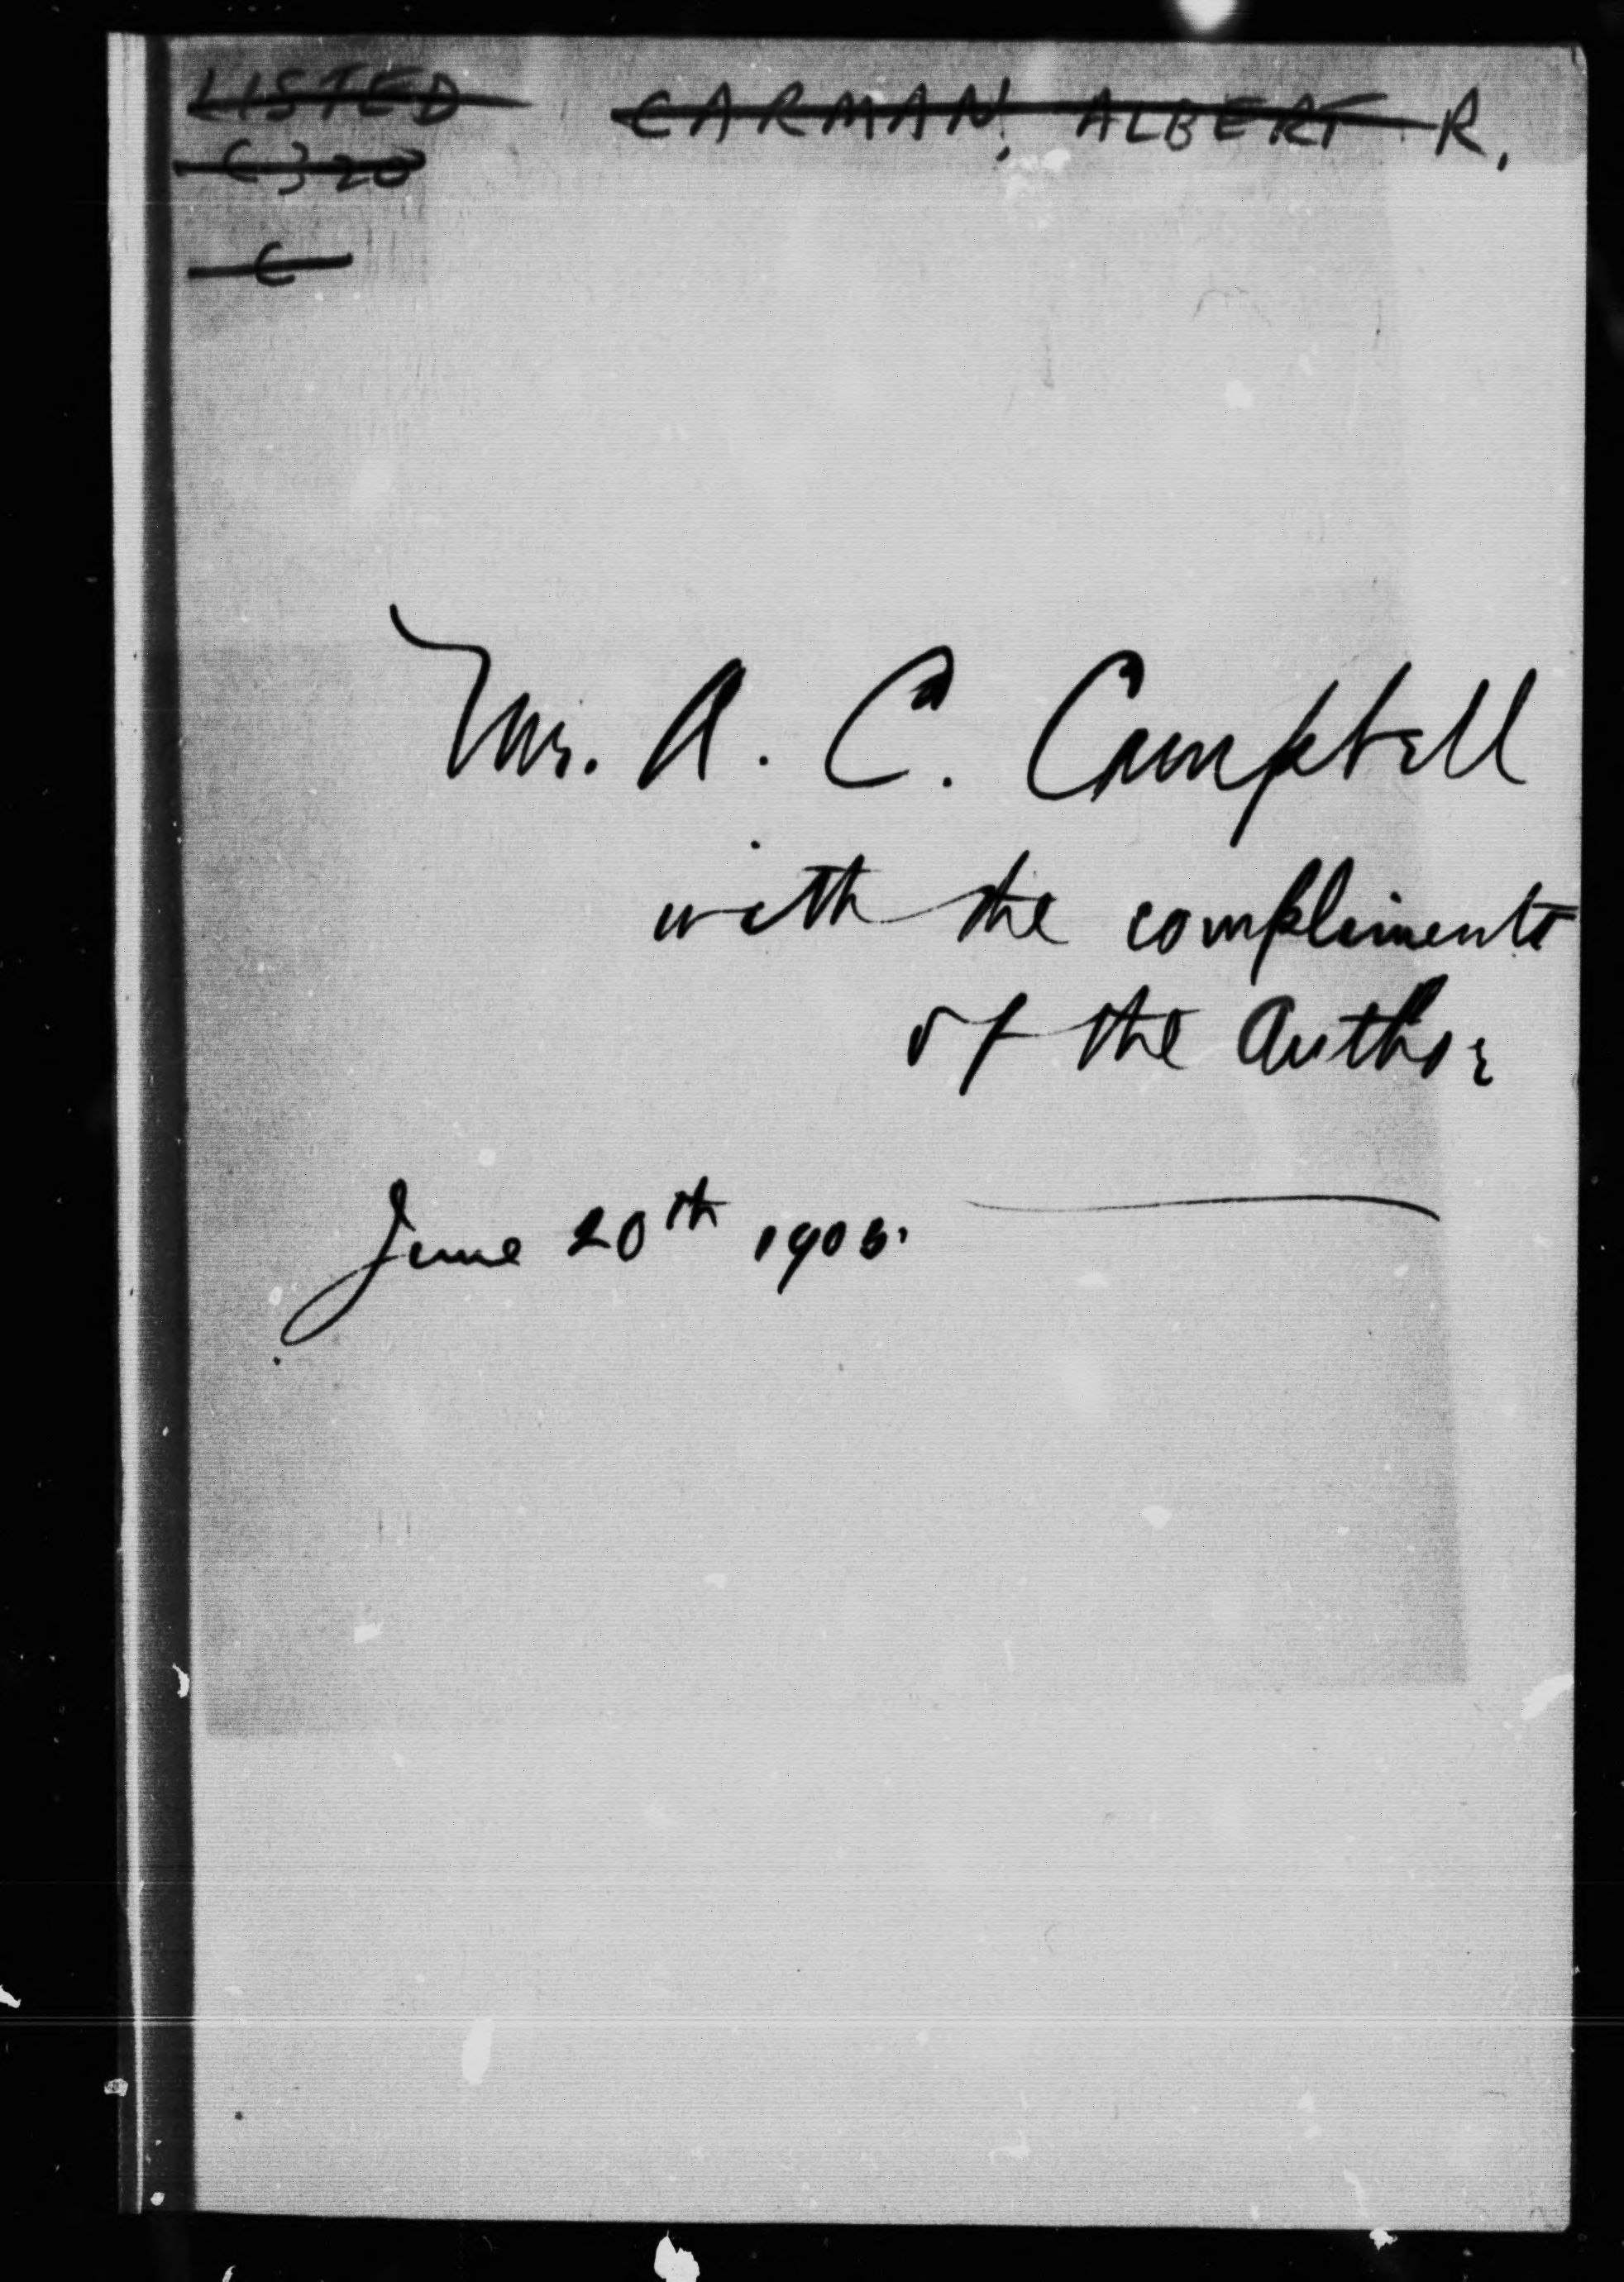 LISTED CARMAN, ALBERT R.
C320
C
Mr. A. C. Campbell
with the compliments
of the Author
June 20th 1905.